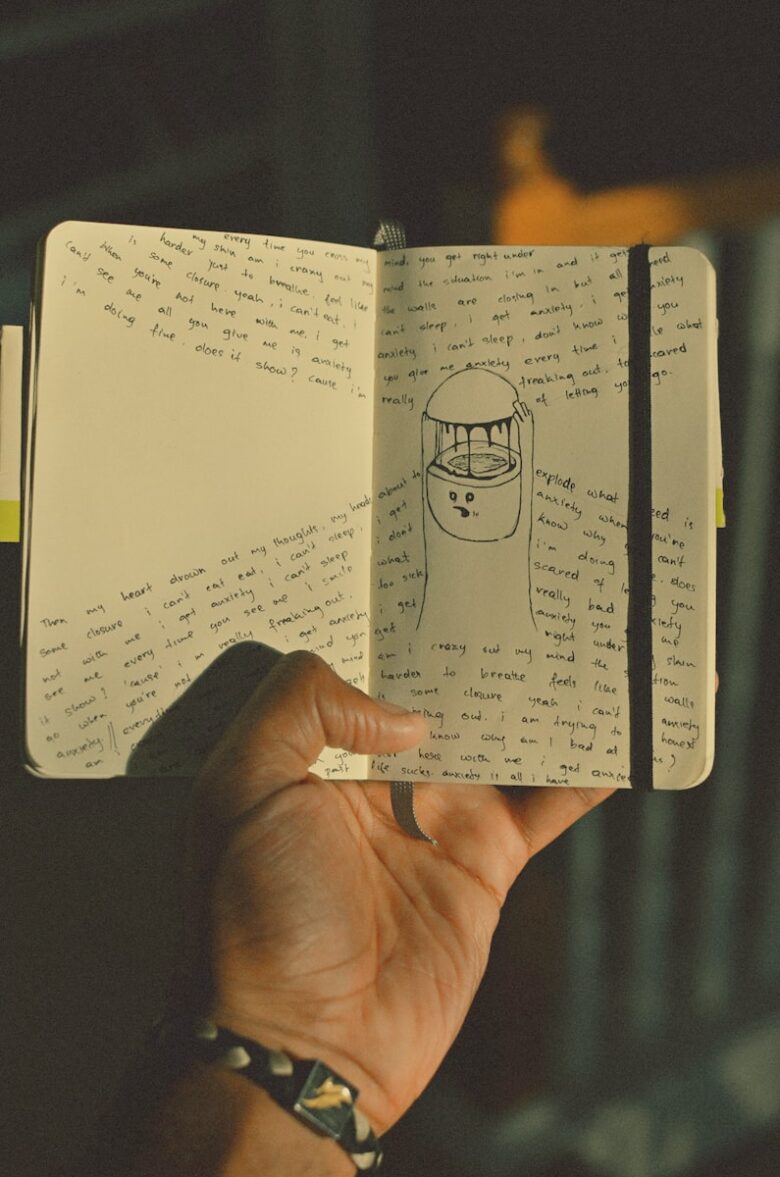 every time you cross my
my skin am i crazy out my
is harder just to breathe. feel like
can't some closure. yeah, i can't eat, i
When you're not here with me. i get
see me all you give me is anxiety
i'm doing fine. does it show? cause i'm
Then my heart drown out my thoughts, my head's
some closure i can't eat eat, i can't sleep,
not with me i get anxiety i can't sleep
see me every time you see me i smile
it show? 'cause' i'm really freaking out.
so when you're not i get anxiety
anxiety mind you
am mind
mind, you get right under
mind the situation i'm in and it get need
the walls are closing in but all anxiety
can't sleep, i get anxiety, i get you
anxiety i can't sleep, don't know what
you give me anxiety every time i scared
really freaking out, to go.
of letting
about to explode what is
i get anxiety when you're
i dont know why can't
what i'm doing does
too sick scared of you
i get really bad
get anxiety you me
right under skin
am i crazy out my mind the
harder to breathe feels like walls
is some closure yeah i can't anxiety
out. i am trying to honest
know why am i bad at ?
you here with me i get
past life sucks. anxiety is all i have